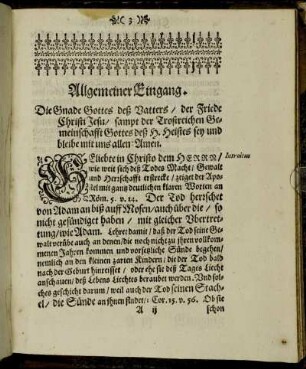 3
Allgemeiner Eingang.
Die Gnade Gottes deß Vatters / der Friede
Christi Jesu / sampt der Trostreichen Ge-
meinschafft Gottes deß H. Geistes sey und
bleibe mit uns allen Amen.
GEliebte in Christo dem HERRN /
Introitus
wie weit sich deß Todes Macht / Gewalt
und Herrschafft erstreckt / zeiget der Apo-
stel mit gantz deutlichen klaren Worten an
Röm. 5. v. 14. Der Tod herrschet
von Adam an biß auff Mosen / auch über die / so
nicht gesündiget haben / mit gleicher Ubertret-
tung / wie Adam. Lehret damit / daß der Tod seine Ge-
walt verübe auch an denen / die noch nicht zu ihren vollkom-
menen Jahren kommen und vorsetzliche Sünde begehen /
nemlich an den kleinen zarten Kindern / die der Tod bald
nach der Geburt hinreisset / oder ehe sie deß Tages Liecht
anschauen / deß Lebens Liechtes beraubet werden. Und sol-
ches geschicht darum / weil auch der Tod seinen Stach-
el / die Sünde an ihnen findet / 1 Cor. 15. v. 56. Ob sie
A ij
schon